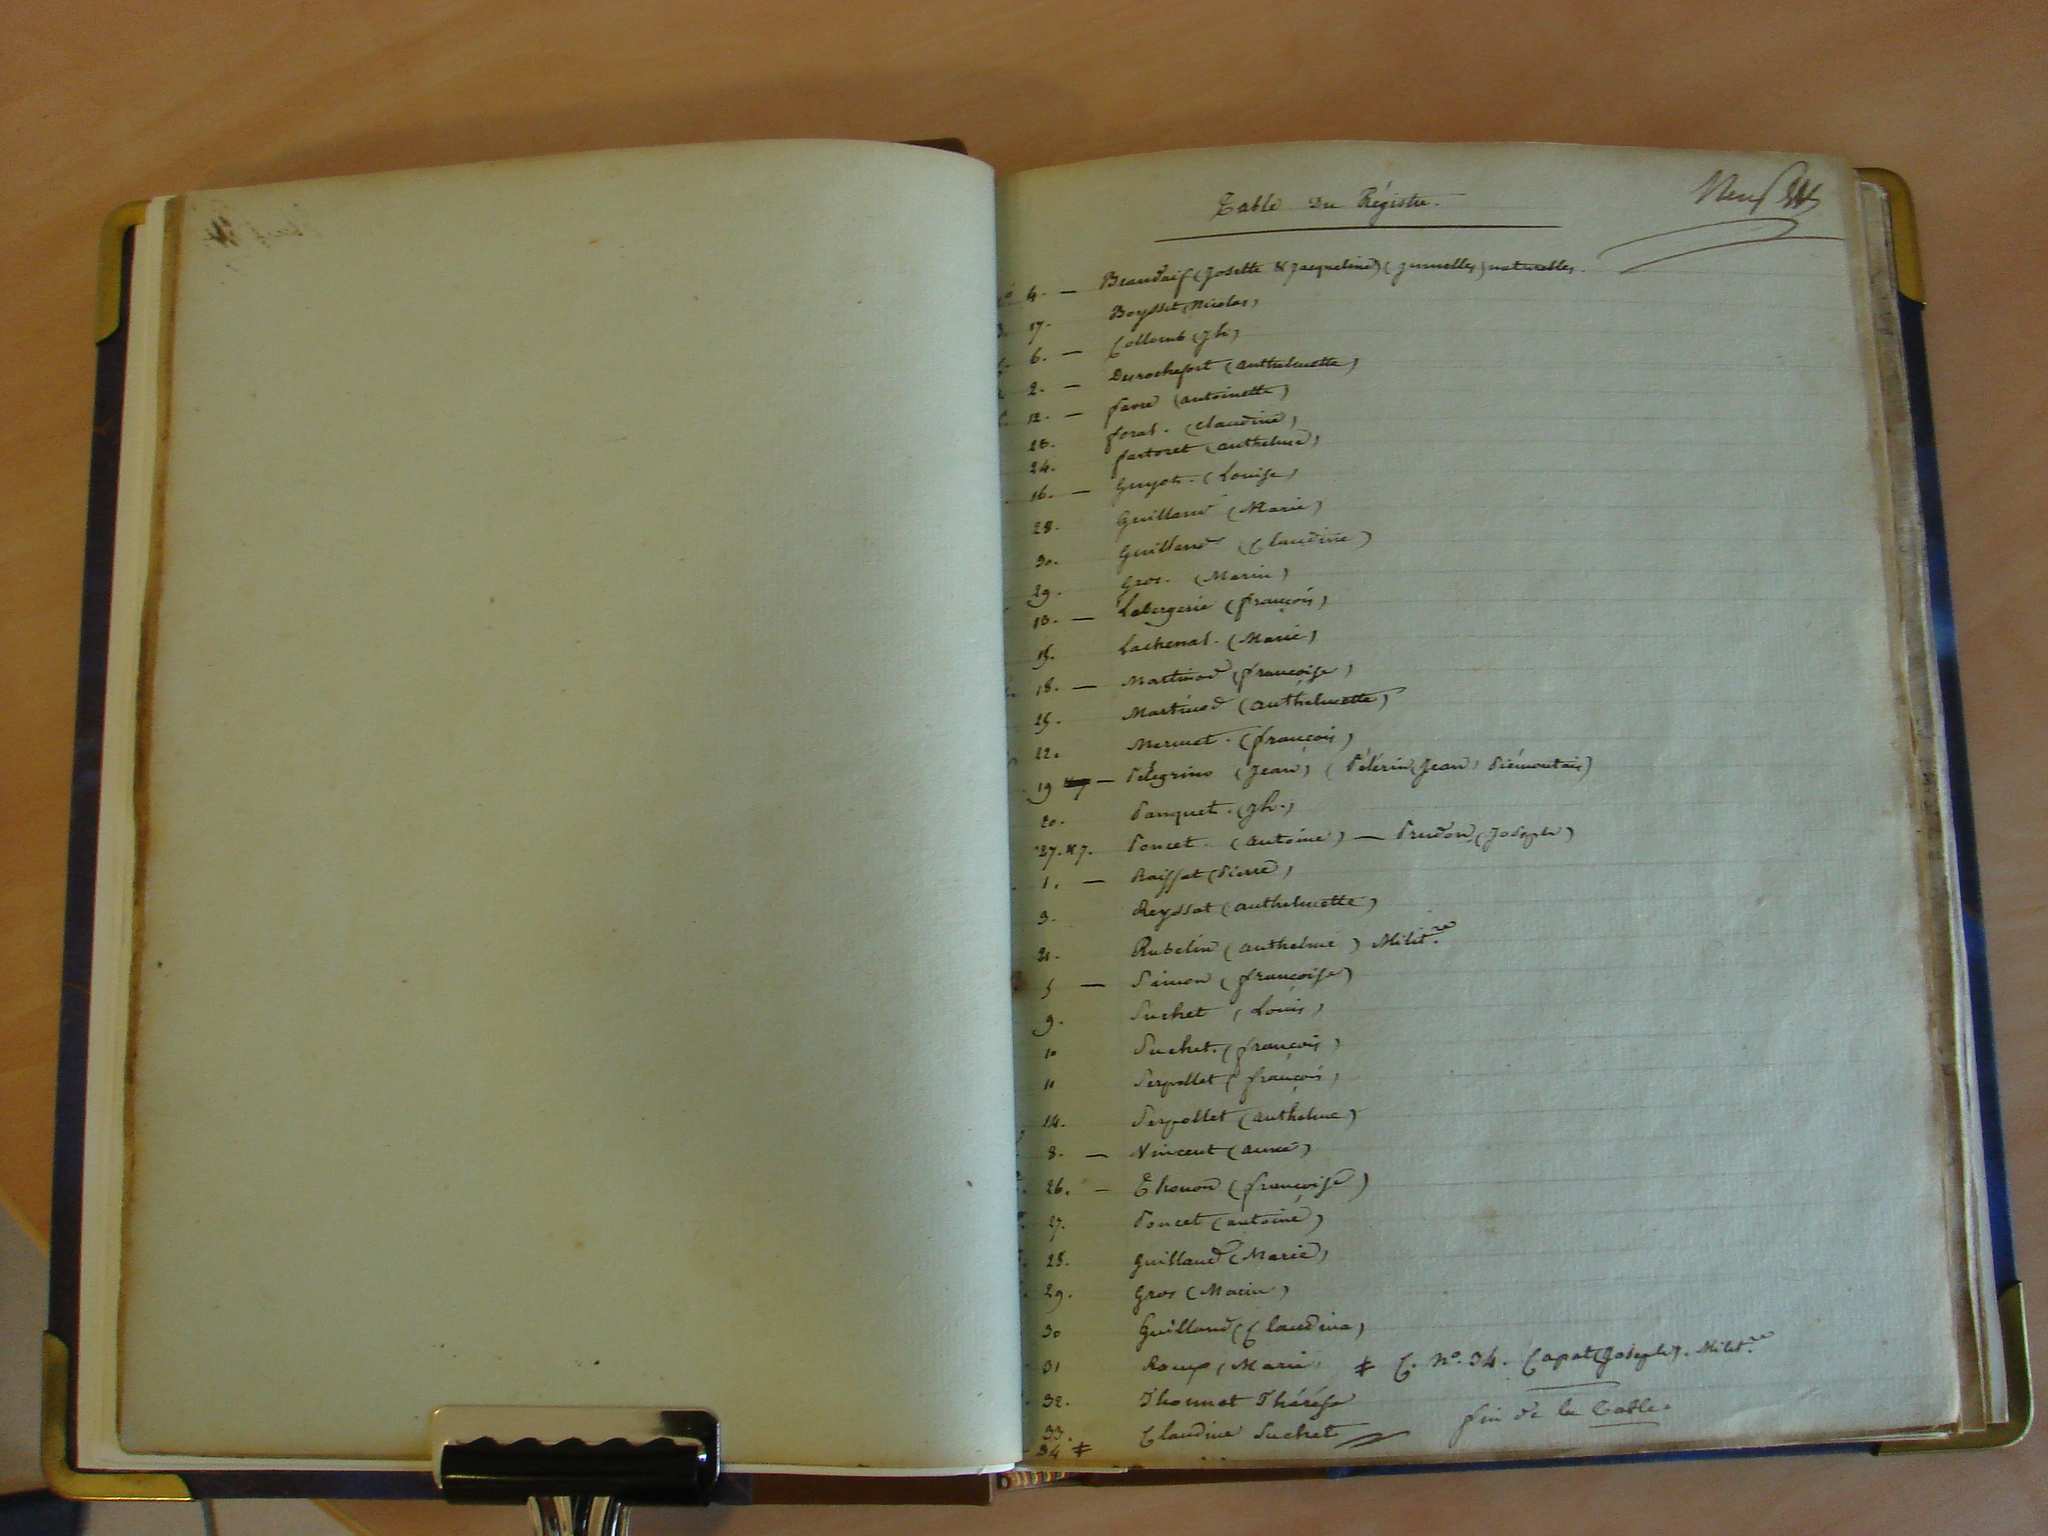 Table Du Régistre.
Neuf
4. — Beaudaif (Josette & Jacqueline) (jumelles) naturelles.
17. Boysset (Nicolas)
6. — Collomb (Jh)
2. — Desrochefort (anthelmette)
12. — favre (antoinette)
23. foral. (Claudine)
24. fartoret (anthelme)
16. — Guyot. (Louise)
28. Guilland (Marie)
30. Guilland (Claudine)
29. Gros. (Marin)
13. — Labergerie (françois)
15. Lachenal. (Marie)
18. — Martinod (françoise)
25. Martinod (anthelmette)
22. Mermet. (françois)
19 — Pélegrino (Jean) (Pélérin (Jean) Piémontais)
20. Panquet. (jh.)
27. & 7. Poncet. (antoine) — Prudon (Joseph)
1. — Raissat (Pierre)
3. Reyssat (anthelmette)
21. Rubelin (anthelme) Milit.re
5 — Simon (françoise)
9. Suchet (Louis)
10 Suchet. (françois)
11 Serpollet (françois)
14. Serpollet (anthelme)
8. — Vincent (anne)
26. — Thonon (françoise)
27. Poncet (antoine)
28. Guilland (Marie)
29. Gros (Marin)
30 Guilland (Claudine)
31 (Marie) ‡ C. No. 34. Capat (Joseph). Milit.re
32. Thomet Thérése
33. Claudine Suchet
34 ‡
fin de la Table.